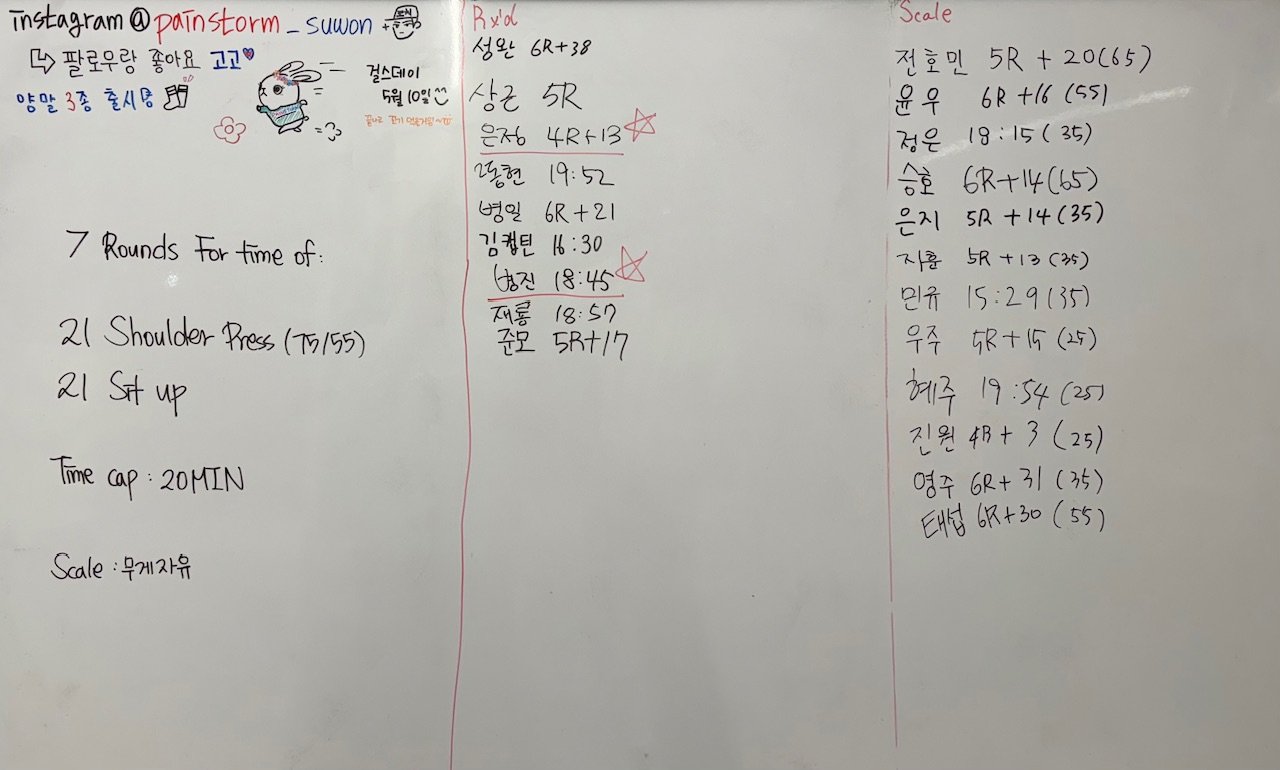 instagram@painstorm_suwon
팔로우랑 좋아요 고고
양말 3종 출시중
걸스데이
5월 10일
7 Rounds For time of:
21 Shoulder Press (75/55)
21 Sit up
Time cap : 20MIN
Scale : 무게자유
Rx'd
성완 6R+38
상근 5R
은정 4R+13
동현 19:52
병일 6R+21
김캡틴 16:30
병진 18:45
재룡 18:57
준모 5R+17
Scale
전호민 5R + 20(65)
윤우 6R+16 (55)
정은 18:15(35)
승호 6R+14(65)
은지 5R+14(35)
지훈 5R+13(35)
민유 15:29(35)
우주 5R+15(25)
혜주 19:54(25)
진원 4R+3 (25)
영주 6R+31 (35)
태섭 6R+30 (55)